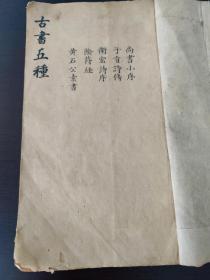 古書五種
尚書小序
子貢詩傳
衛宏詩序
陰符經
黃石公素書